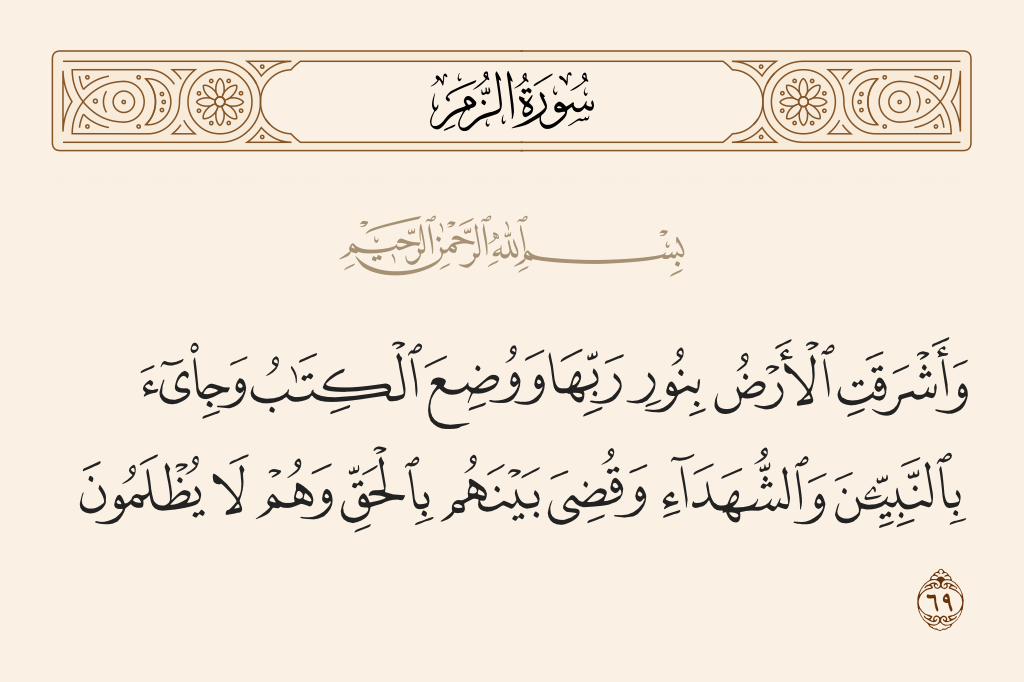 سُورَةُ الزُّمَرِ
بِسْمِ ٱللَّهِ ٱلرَّحْمَٰنِ ٱلرَّحِيمِ
وَأَشْرَقَتِ ٱلْأَرْضُ بِنُورِ رَبِّهَا وَوُضِعَ ٱلْكِتَٰبُ وَجِا۟ىٓءَ
بِٱلنَّبِيِّۦنَ وَٱلشُّهَدَآءِ وَقُضِىَ بَيْنَهُم بِٱلْحَقِّ وَهُمْ لَا يُظْلَمُونَ
٦٩